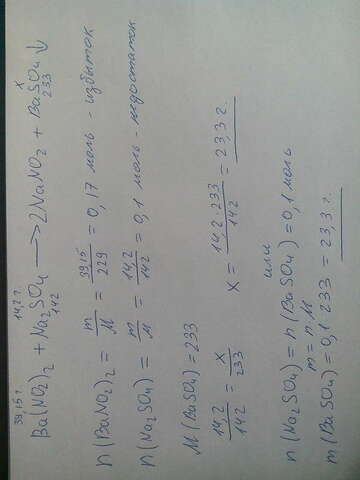 39,15 г 14,2 г. x
Ba(NO2)2 + Na2SO4 ⟶ 2NaNO2 + BaSO4↓
142 233
n(BaNO2)2 = m/M = 39,15/229 = 0,17 моль - избыток
n(Na2SO4) = m/M = 14,2/142 = 0,1 моль - недостаток
M(BaSO4) = 233
14,2/142 = x/233 x = 14,2·233/142 = 23,3 г.
или
n(Na2SO4) = n(BaSO4) = 0,1 моль
m = n·M
m(BaSO4) = 0,1·233 = 23,3 г.